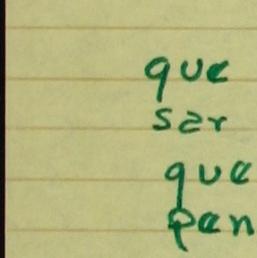 que
ser
que
pen